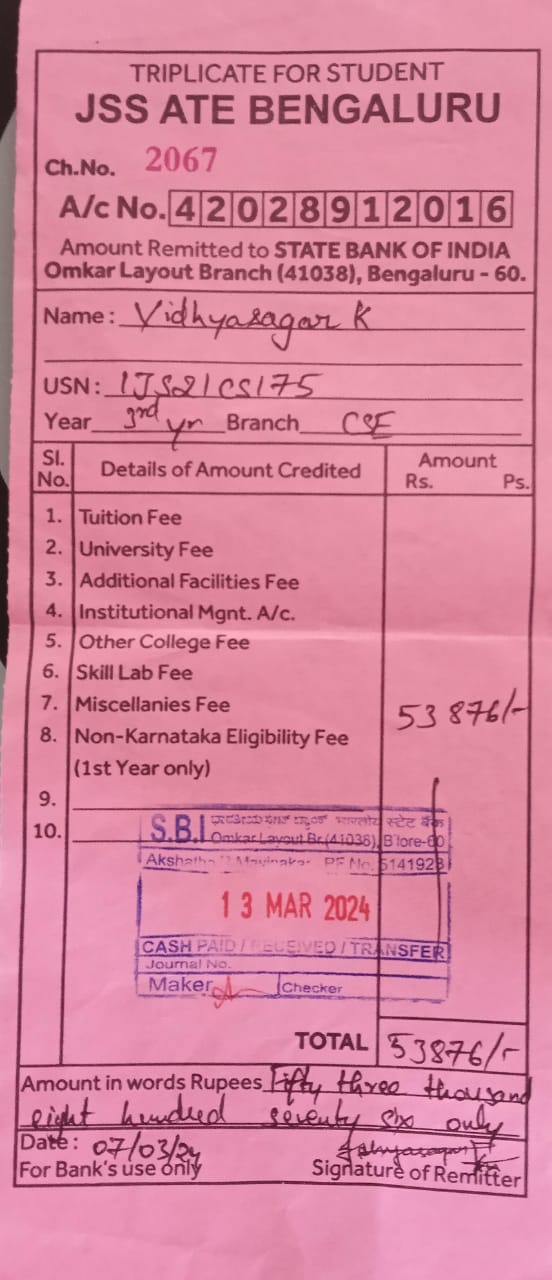 TRIPLICATE FOR STUDENT
JSS ATE BENGALURU
Ch.No. 2067
A/c No. 42028912016
Amount Remitted to STATE BANK OF INDIA
Omkar Layout Branch (41038), Bengaluru - 60.
Name : Vidhyasagar K
USN : 1JS21CS175
Year 3rd yr Branch CSE
Sl. No. Details of Amount Credited Amount Rs. Ps.
1. Tuition Fee
2. University Fee
3. Additional Facilities Fee
4. Institutional Mgnt. A/c.
5. Other College Fee
6. Skill Lab Fee
7. Miscellanies Fee 53876/-
8. Non-Karnataka Eligibility Fee
(1st Year only)
9.
10.
S.B.I भारतीय स्टेट बैंक
Omkar Layout Br.(41038), B'lore-60
Akshatha PF No. 5141923
13 MAR 2024
CASH PAID / RECEIVED / TRANSFER
Journal No.
Maker Checker
TOTAL 53876/-
Amount in words Rupees Fifty three thousand
eight hundred seventy six only
Date : 07/03/24
For Bank's use only Signature of Remitter